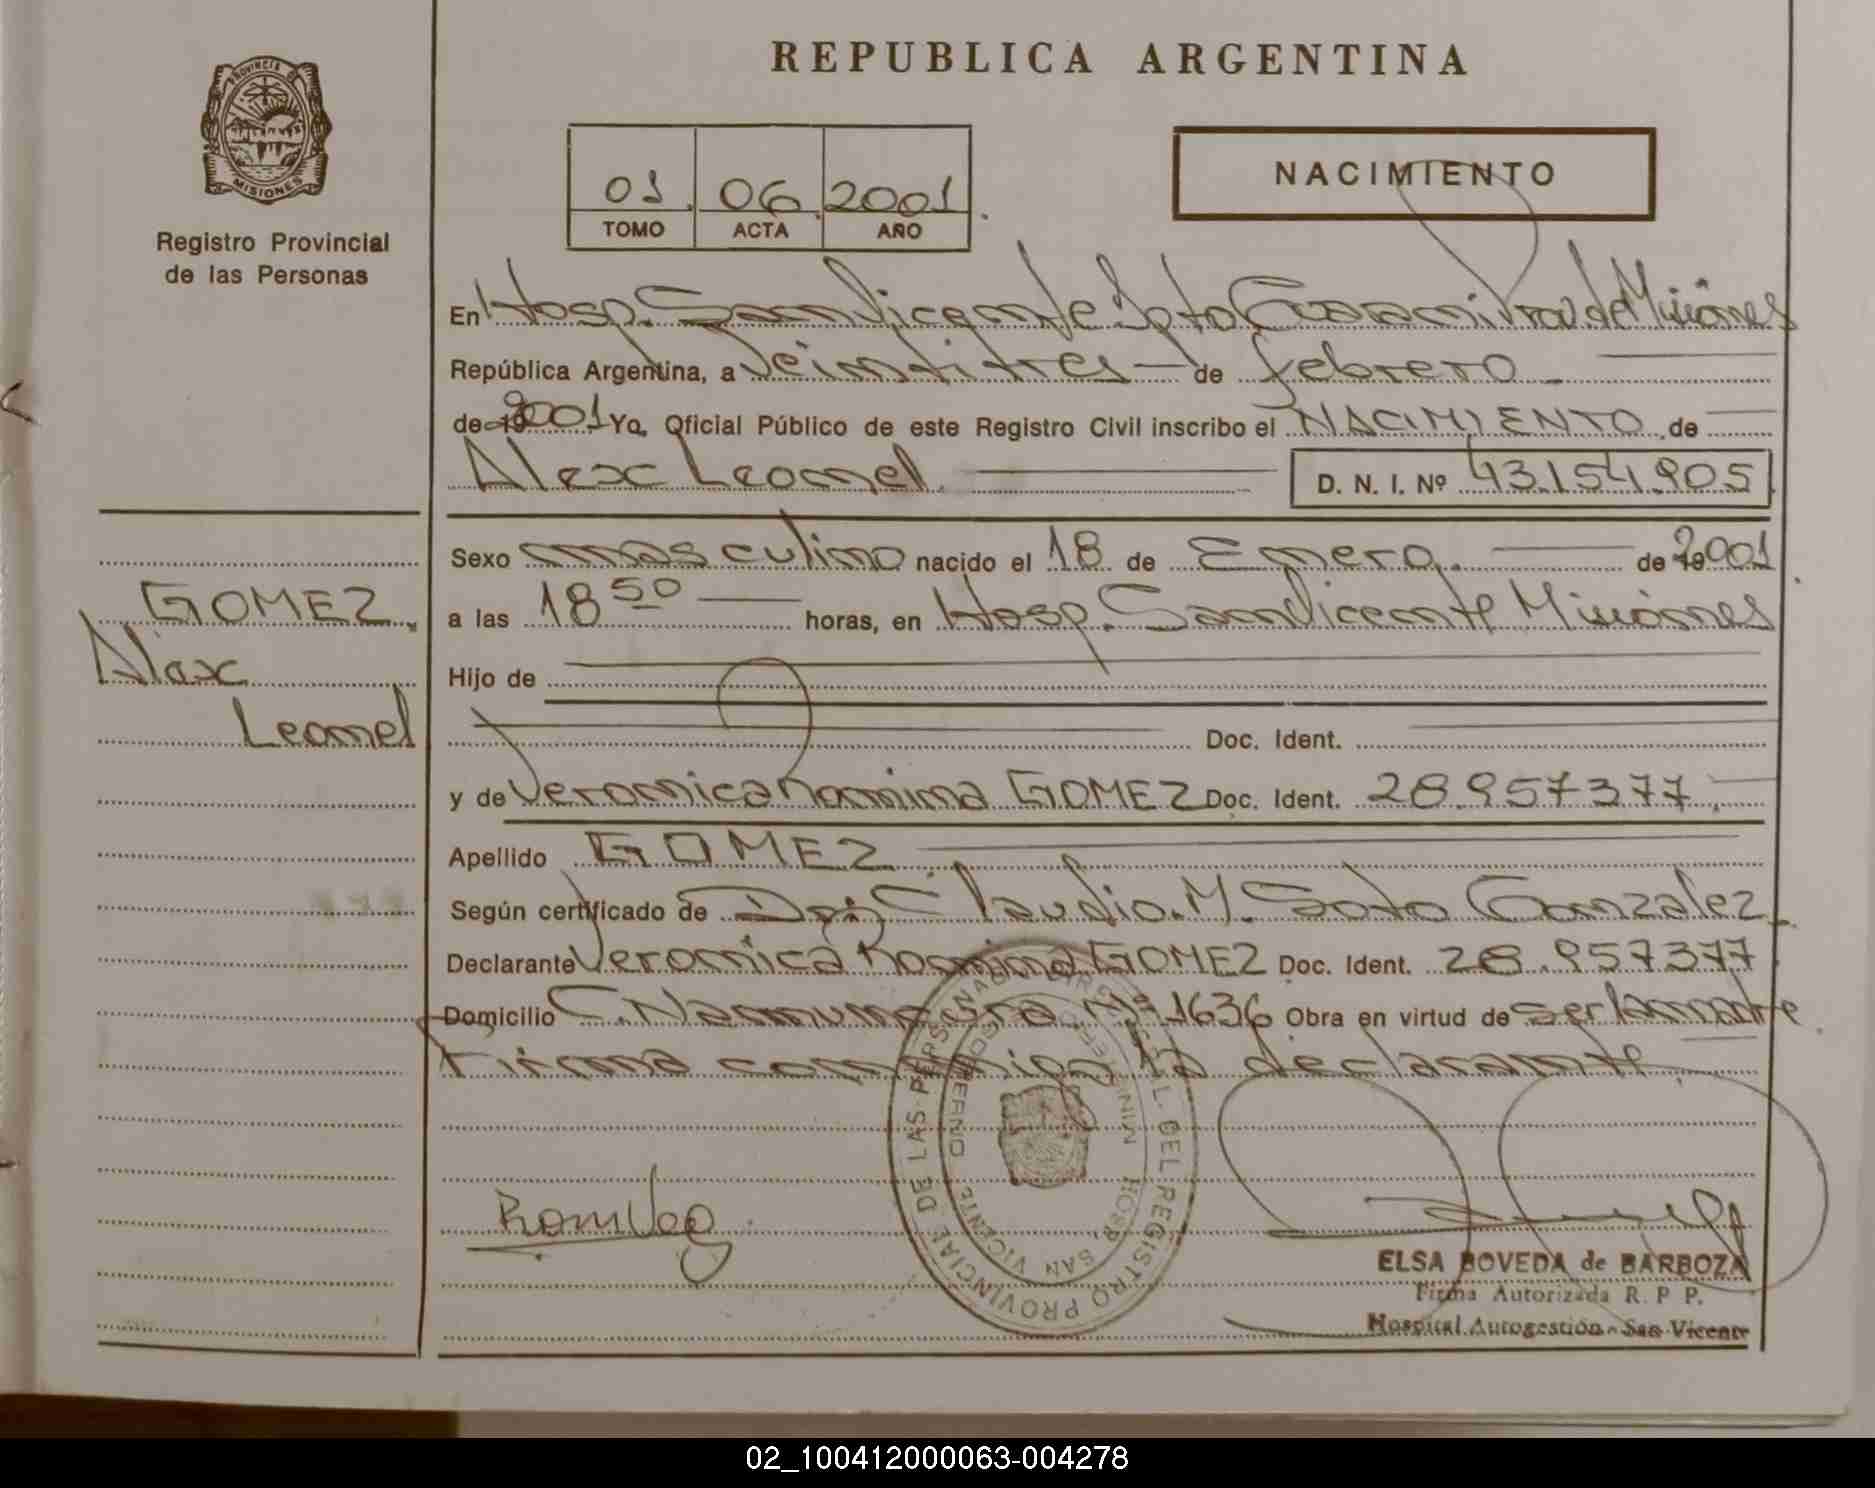 REPUBLICA ARGENTINA
PROVINCIA DE
MISIONES
Registro Provincial
de las Personas
01 06 2001
TOMO ACTA AÑO
NACIMIENTO
En Hosp. San Vicente Dpto Guaraní Prov. de Misiones
República Argentina, a Veintitres de febrero
de 2001 Yo, Oficial Público de este Registro Civil inscribo el NACIMIENTO de
Alex Leonel D. N. I. Nº 43.154.905
Sexo masculino nacido el 18 de Enero de 2001
GOMEZ
Alex
Leonel
a las 18 50 horas, en Hosp. San Vicente Misiones
Hijo de
Doc. Ident.
y de Veronica Romina GOMEZ Doc. Ident. 28.957377
Apellido GOMEZ
Según certificado de Dr. Claudio M. Soto Gonzalez
Declarante Veronica Romina GOMEZ Doc. Ident. 28.957377
Domicilio C. Namuncura Nº 1636 Obra en virtud de ser la madre
Firma conmigo la declarante
PROVINCIAL DE LAS PERSONAS
DEL REGISTRO
HOSP. SAN VICENTE
ELSA BOVEDA de BARBOZA
Firma Autorizada R. P P.
Hospital Autogestión - San Vicente
02_100412000063-004278